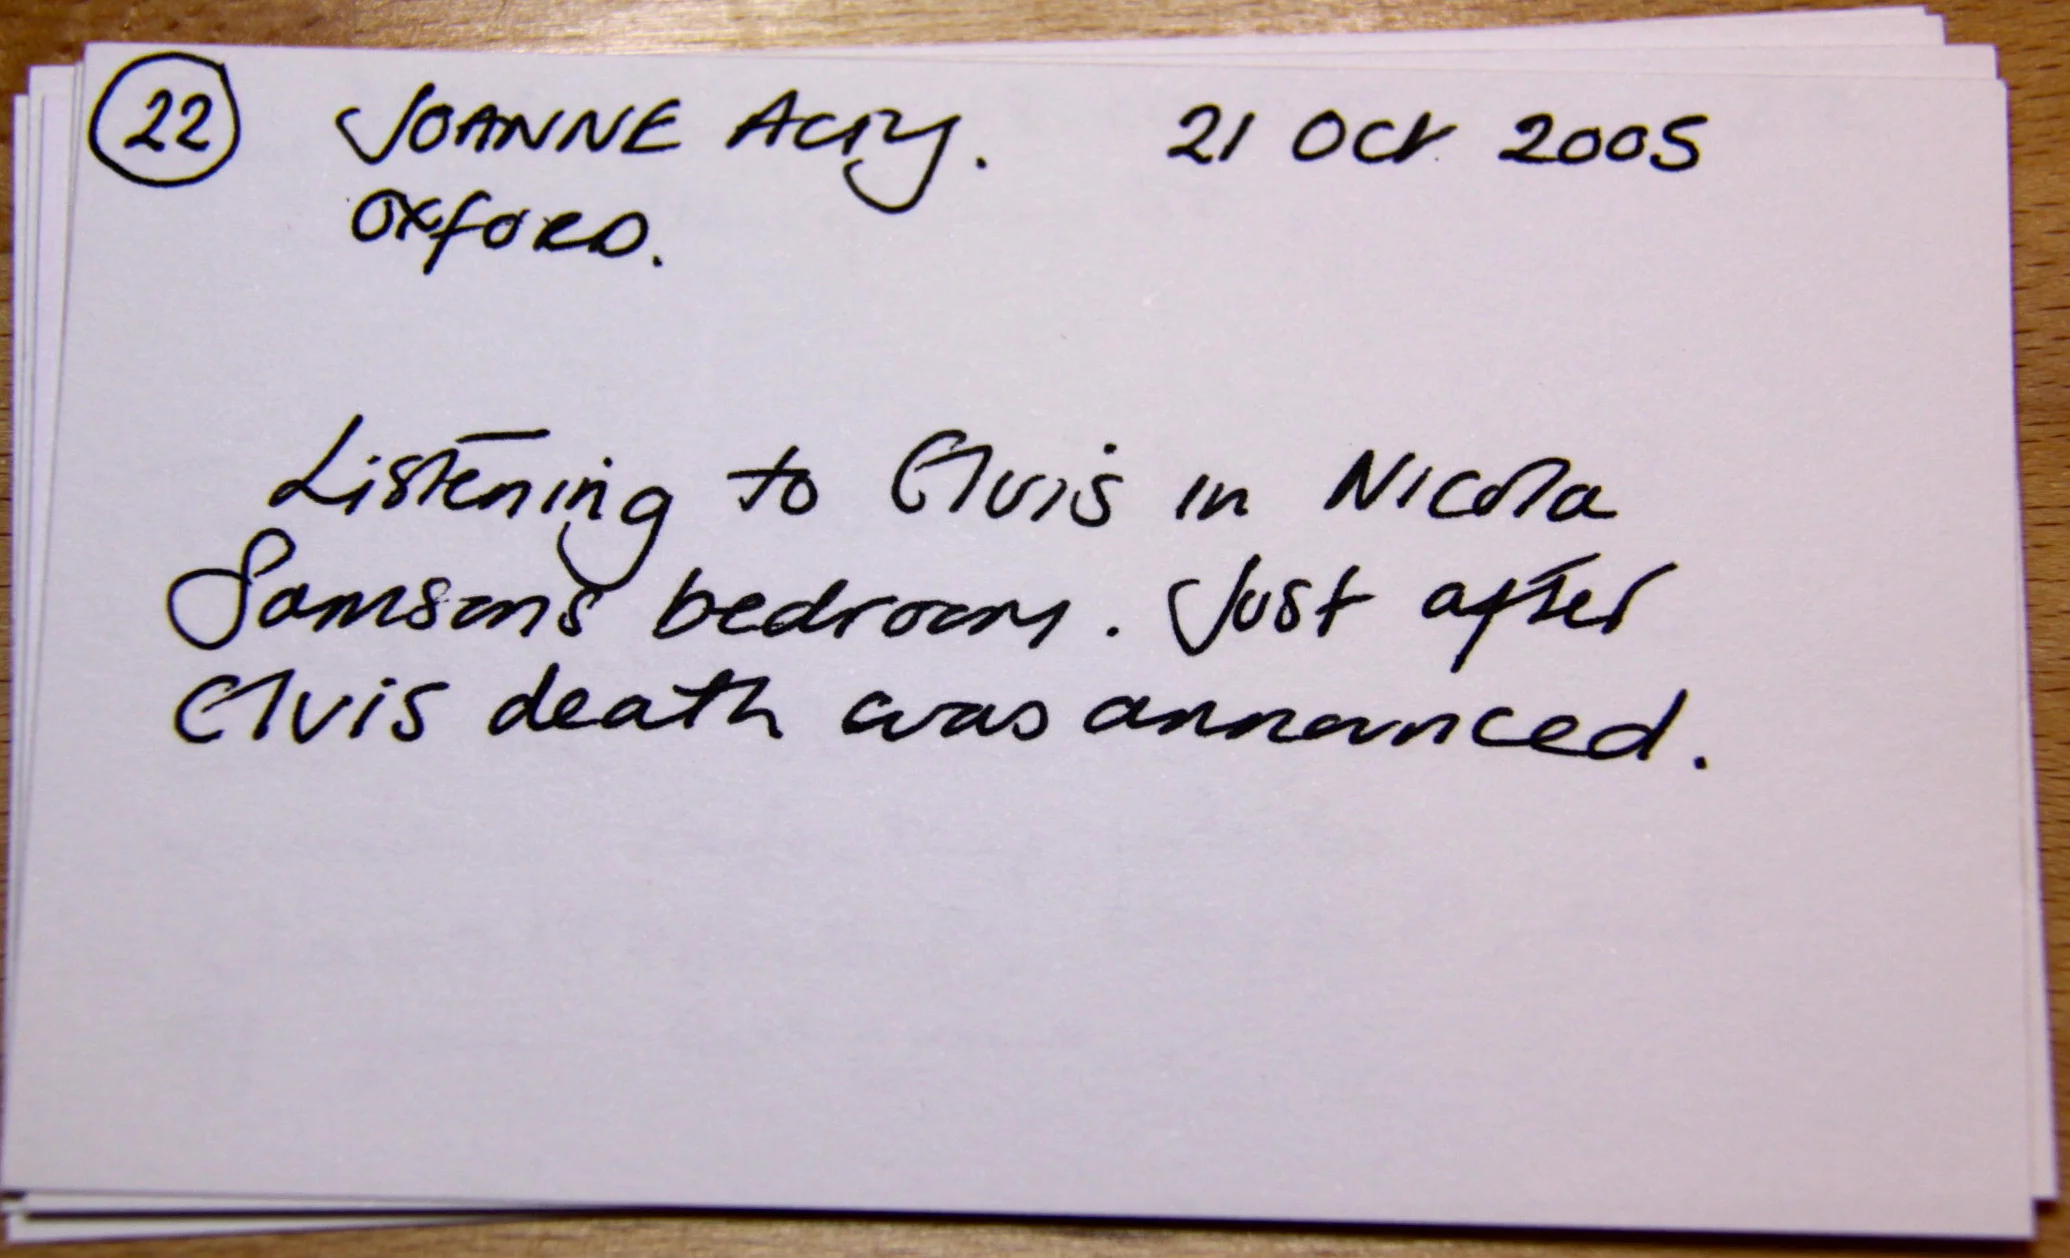 22 JOANNE Acry. 21 Oct 2005
Oxford.
Listening to Elvis in Nicola
Samsons bedroom. Just after
Elvis death was announced.